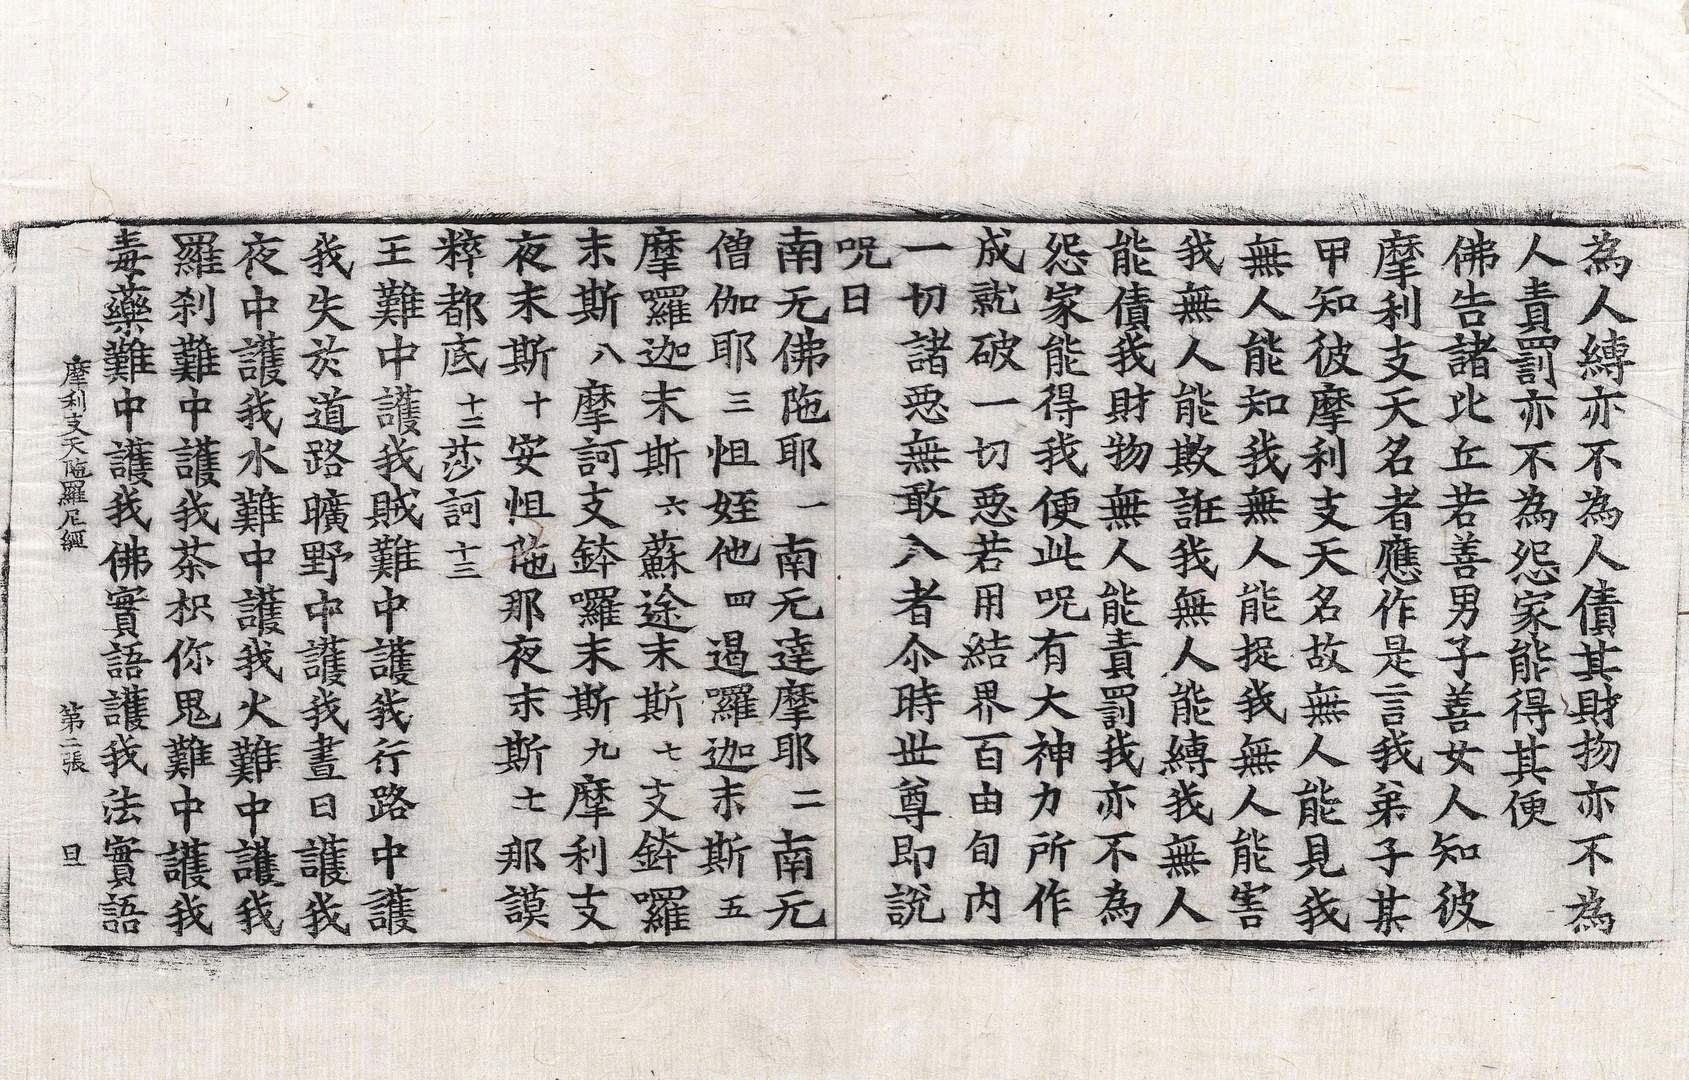 為人縛亦不為人債其財物亦不為
人責罰亦不為怨家能得其便
佛告諸比丘若善男子善女人知彼
摩利支天名者應作是言我弟子某
甲知彼摩利支天名故無人能見我
無人能知我無人能捉我無人能害
我無人能欺誑我無人能縛我無人
能債我財物無人能責罰我亦不為
怨家能得我便此呪有大神力所作
成就破一切惡若用結界百由旬內
一切諸惡無敢入者尒時世尊即說
呪曰
南无佛陁耶一南无達摩耶二南无
僧伽耶三怛姪他四遏囉迦末斯五
摩囉迦末斯六蘇途末斯七支鉢囉
末斯八摩訶支鉢囉末斯九摩利支
夜末斯十安怛陁那夜末斯十一那謨
粹都底十二莎訶十三
王難中護我賊難中護我行路中護
我失於道路曠野中護我晝日護我
夜中護我水難中護我火難中護我
羅剎難中護我茶枳你鬼難中護我
毒藥難中護我佛實語護我法實語
摩利支天陁羅尼經 第二張 旦